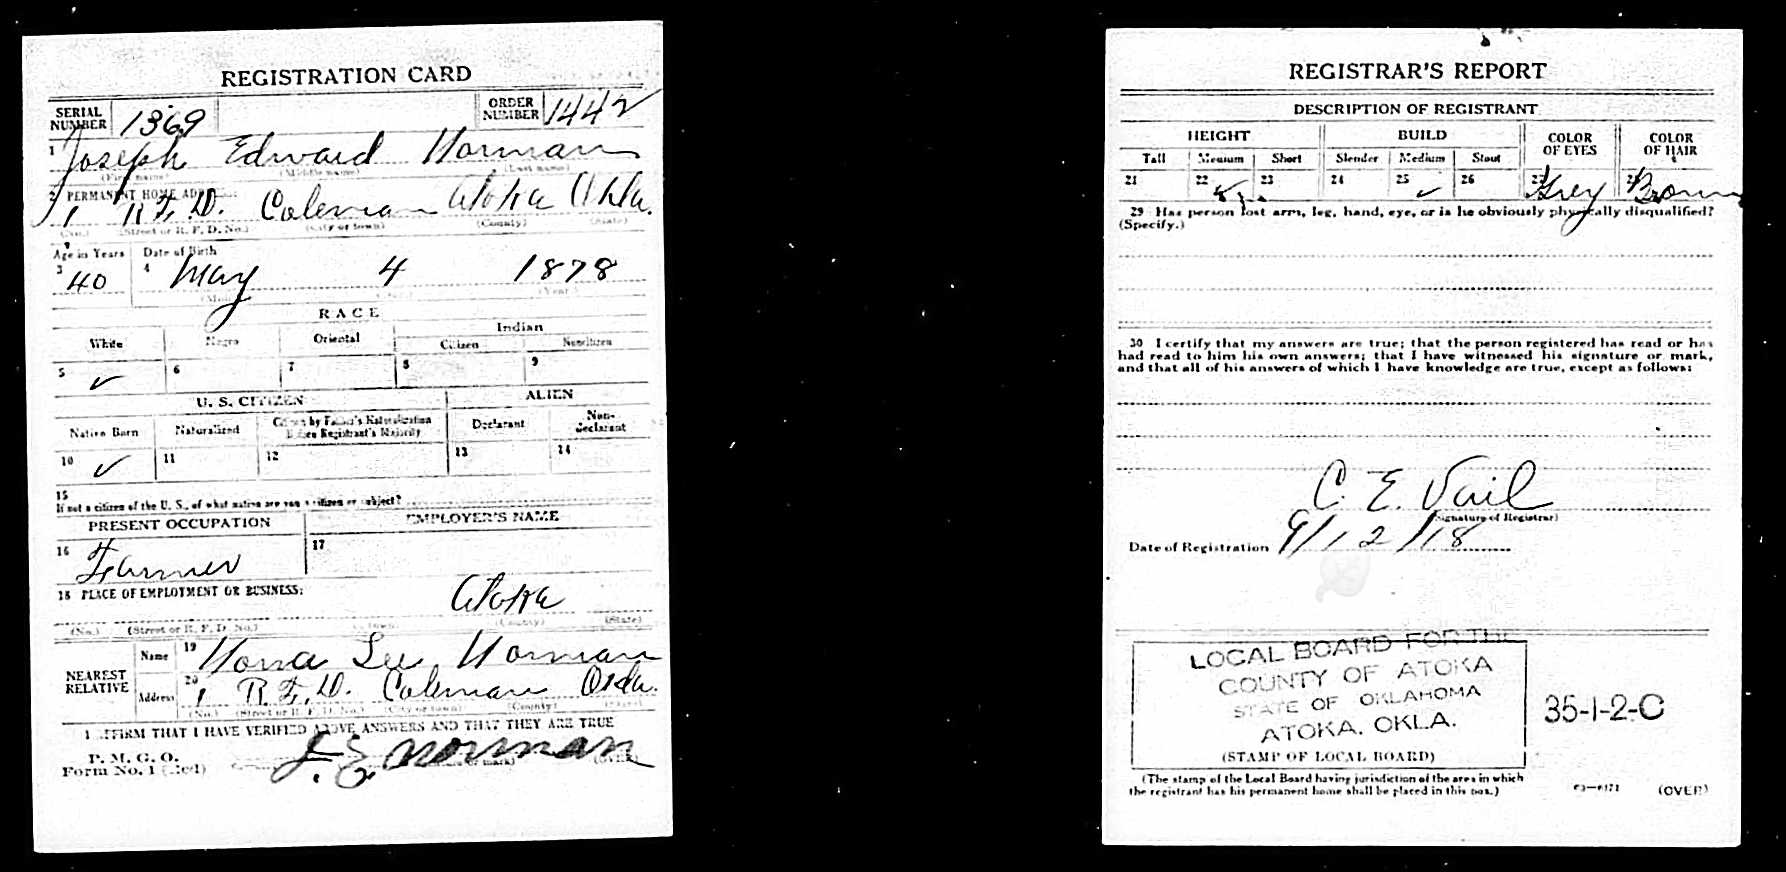 REGISTRATION CARD
SERIAL NUMBER 1369 ORDER NUMBER 1442
1 Joseph Edward Norman
(First name) (Middle name) (Last name)
2 PERMANENT HOME ADDRESS:
1 R.F.D. Coleman Atoka Okla.
(No.) (Street or R. F. D. No.) (City or town) (County) (State)
Age in Years Date of Birth
3 40 4 May 4 1878
(Year)
RACE
White Negro Oriental Indian
Citizen Noncitizen
5 ✓ 6 7 8 9
U. S. CITIZEN ALIEN
Native Born Naturalized Citizen by Father's Naturalization Before Registrant's Majority Declarant Non-declarant
10 ✓ 11 12 13 14
15
If not a citizen of the U. S., of what nation are you a citizen or subject?
PRESENT OCCUPATION EMPLOYER'S NAME
16 Farmer 17
18 PLACE OF EMPLOYMENT OR BUSINESS:
Atoka
(No.) (Street or R. F. D. No.) (County) (State)
NEAREST RELATIVE Name 19 Nona Lee Norman
Address 20 1 R.F.D. Coleman Okla.
(No.) (Street or R. F. D. No.) (City or town) (County) (State)
I AFFIRM THAT I HAVE VERIFIED ABOVE ANSWERS AND THAT THEY ARE TRUE
P. M. G. O.
Form No. 1 (Red) J. E. Norman (OVER)
REGISTRAR'S REPORT
DESCRIPTION OF REGISTRANT
HEIGHT BUILD COLOR OF EYES COLOR OF HAIR
Tall Medium Short Slender Medium Stout
21 22 ✓ 23 24 25 ✓ 26 27 Grey 28 Brown
29 Has person lost arm, leg, hand, eye, or is he obviously physically disqualified?
(Specify.)
30 I certify that my answers are true; that the person registered has read or has
had read to him his own answers; that I have witnessed his signature or mark,
and that all of his answers of which I have knowledge are true, except as follows:
C. E. Vail
(Signature of Registrar)
Date of Registration 9/12/18
LOCAL BOARD FOR THE
COUNTY OF ATOKA
STATE OF OKLAHOMA
ATOKA, OKLA.
35-1-2-C
(STAMP OF LOCAL BOARD)
(The stamp of the Local Board having jurisdiction of the area in which
the registrant has his permanent home shall be placed in this box.)
(OVER)